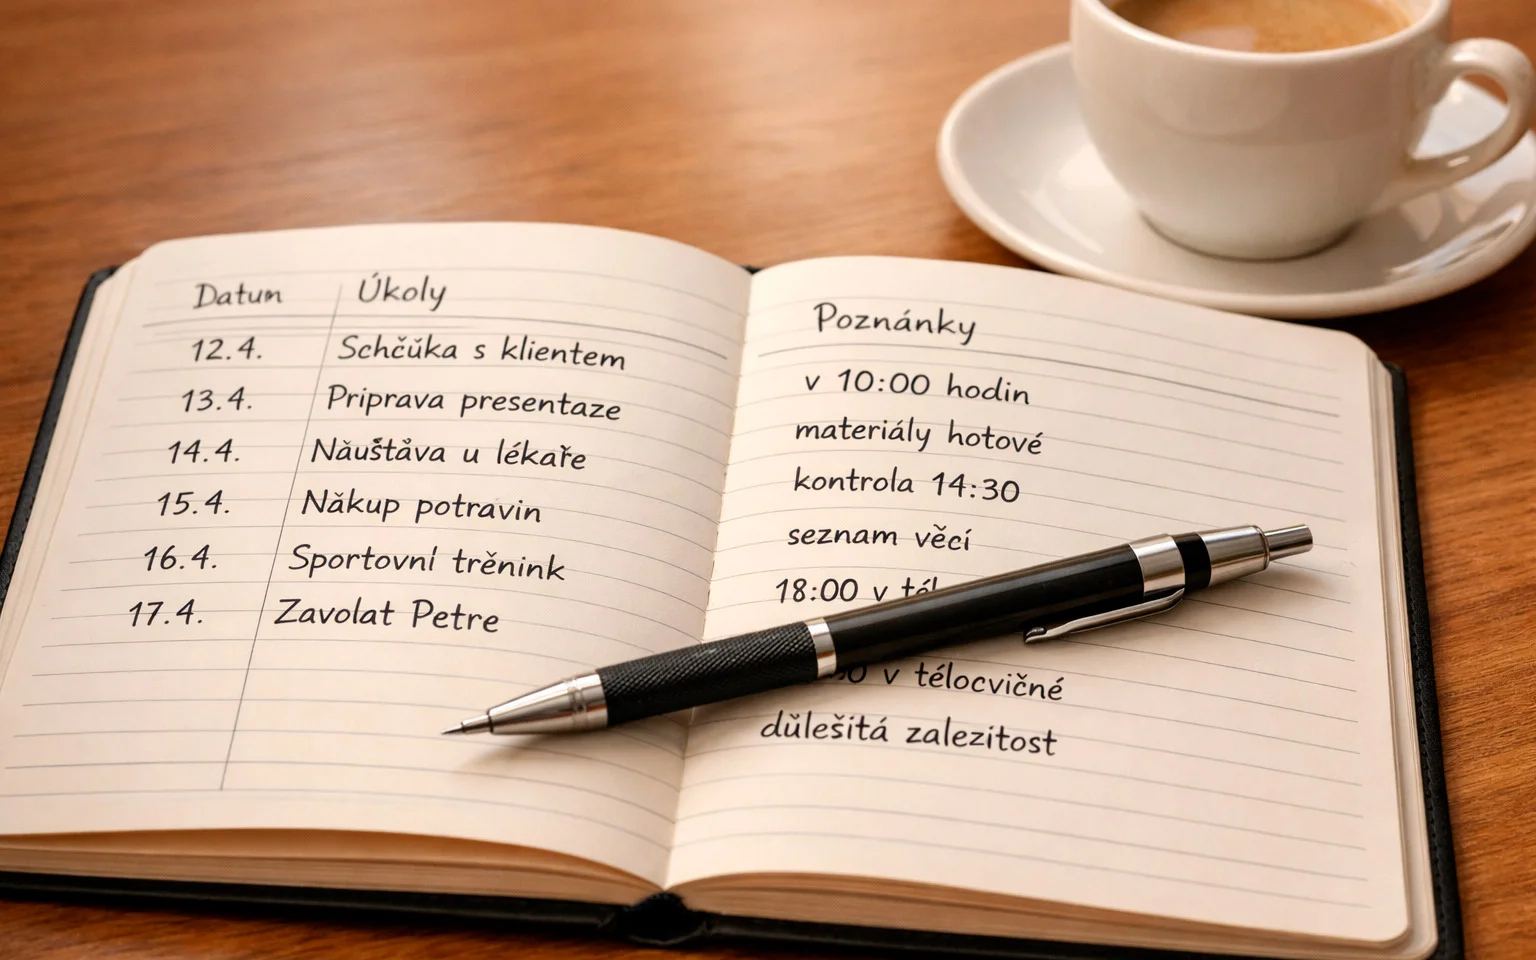 Datum Úkoly
12.4. Schčůka s klientem
13.4. Priprava presentaze
14.4. Náušťáva u lékaře
15.4. Nákup potravin
16.4. Sportovní trěnink
17.4. Zavolat Petre
Poznánky
v 10:00 hodin
materiály hotové
kontrola 14:30
seznam věcí
18:00 v
v télocvičné
důlešitá zalezitost